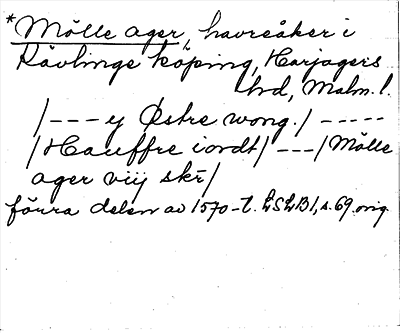 *Mölle ager, havreåker i
Rävlinge köping, Harjagers
hd, Malm. l.
/--- y Østre wong./ -----
/Hauffre iordt/ ---/Mölle
ager viij skr̄/
förra delen av 1570-t. LSLB1, s. 69 orig.